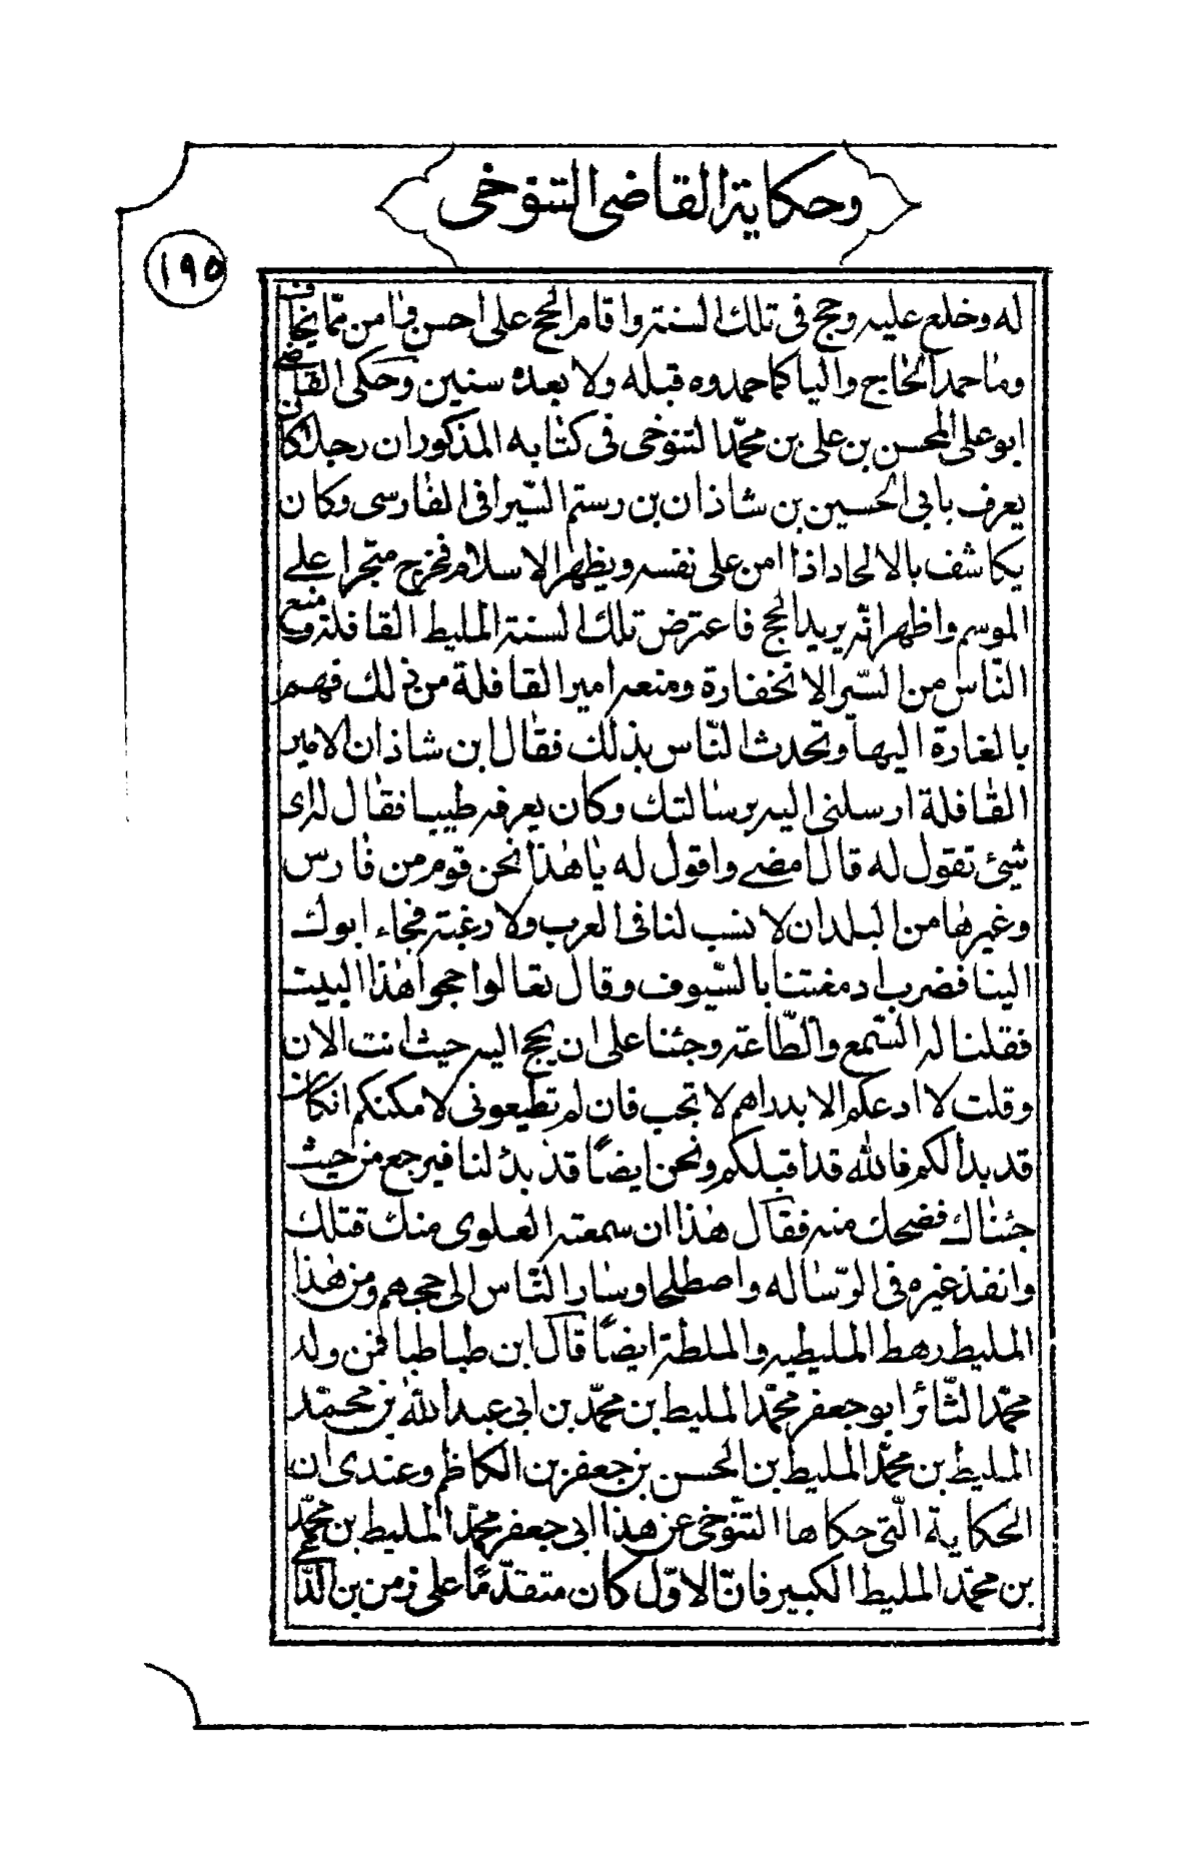 وحكاية القاضى التنوخى
١٩٥
له وخلع عليه وحج فى تلك السنة واقام الحج على احسن قيام من مما يخاف
وما حمد الحاج واليا كما حمدوه قبله ولا بعده سنين وحكى القاضى
ابو على المحسن بن على بن محمد التنوخى فى كتابه المذكور ان رجلا كان
يعرف بابى الحسين بن شاذان بن رستم السيرافى الفارسى وكان
يكاشف بالالحاد اذا امن على نفسه ويظهر الاسلام فخرج متجرا على
الموسم واظهر انه يريد الحج فاعترض تلك السنة المليط القافلة ومنع
الناس من السير الا بخفارة ومنعه امير القافلة من ذلك فهم
بالغارة اليها وتحدث الناس بذلك فقال ابن شاذان لامير
القافلة ارسلنى اليه برسالتك وكان يعرفه طيبا فقال له اى
شئ تقول له قال امضى واقول له يا هذا نحن قوم من فارس
وغيرها من البلدان لا نسب لنا فى العرب ولا رغبة فجاء ابوك
الينا فضرب ادمغتنا بالسيوف وقال تعالوا حجوا هذا البيت
فقلنا له السمع والطاعة وجئنا على ان يحج اليه حيث انت الان
وقلت لا ادعكم الا بدراهم لا تجب فان لم تطيعونى لا مكنكم ان كان
قد بدا لكم فالله قد اقبلكم ونحن ايضا قد بدا لنا فيرجع من حيث
جئناك فضحك منه فقال هذا ان سمعته العلوى منك قتلك
وانفذ غيره فى الرساله واصطلحا وسار الناس الى حجهم ومن هذا
المليط رهط المليطيه والملطة ايضا قال ابن طباطبا فمن ولد
محمد الثائر ابو جعفر محمد المليط بن محمد بن ابى عبد الله بن محمد
المليط بن محمد المليط بن الحسن بن جعفر بن الكاظم وعندى ان
الحكاية التى حكاها التنوخى عن هذا ابى جعفر محمد المليط بن محمد
بن محمد المليط الكبير فان الاول كان متقدما على زمن بن الداعى